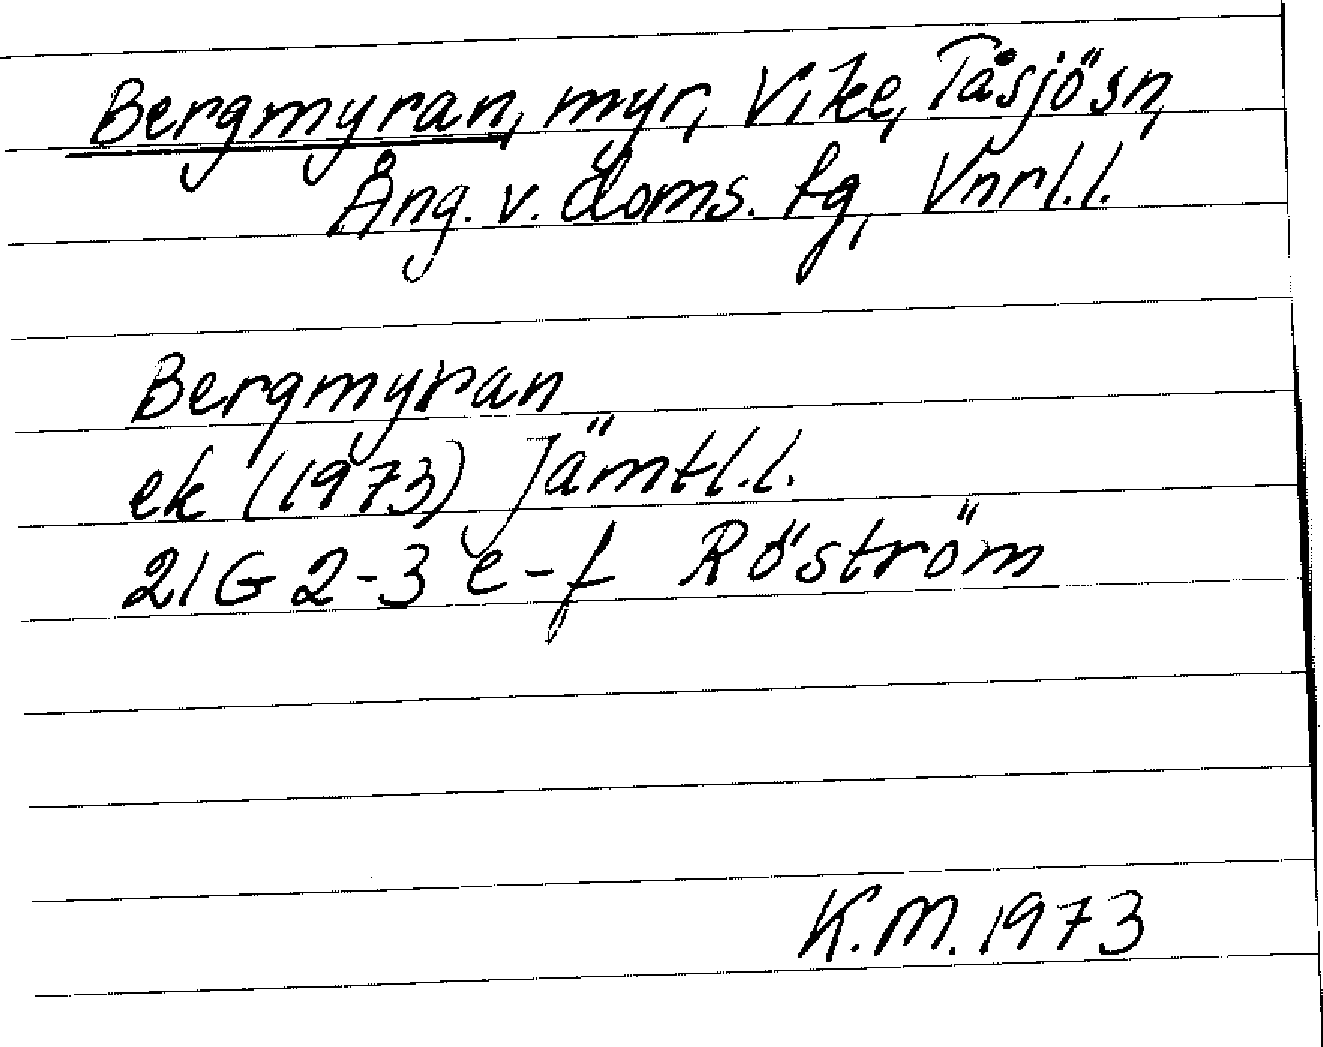 Bergmyran, myr, Vike, Tåsjösn,
Ång. v. doms. fg, Vnrl.l.
Bergmyran
ek (1973) Jämtl.l.
21G 2-3 e-f Röström
K.M. 1973